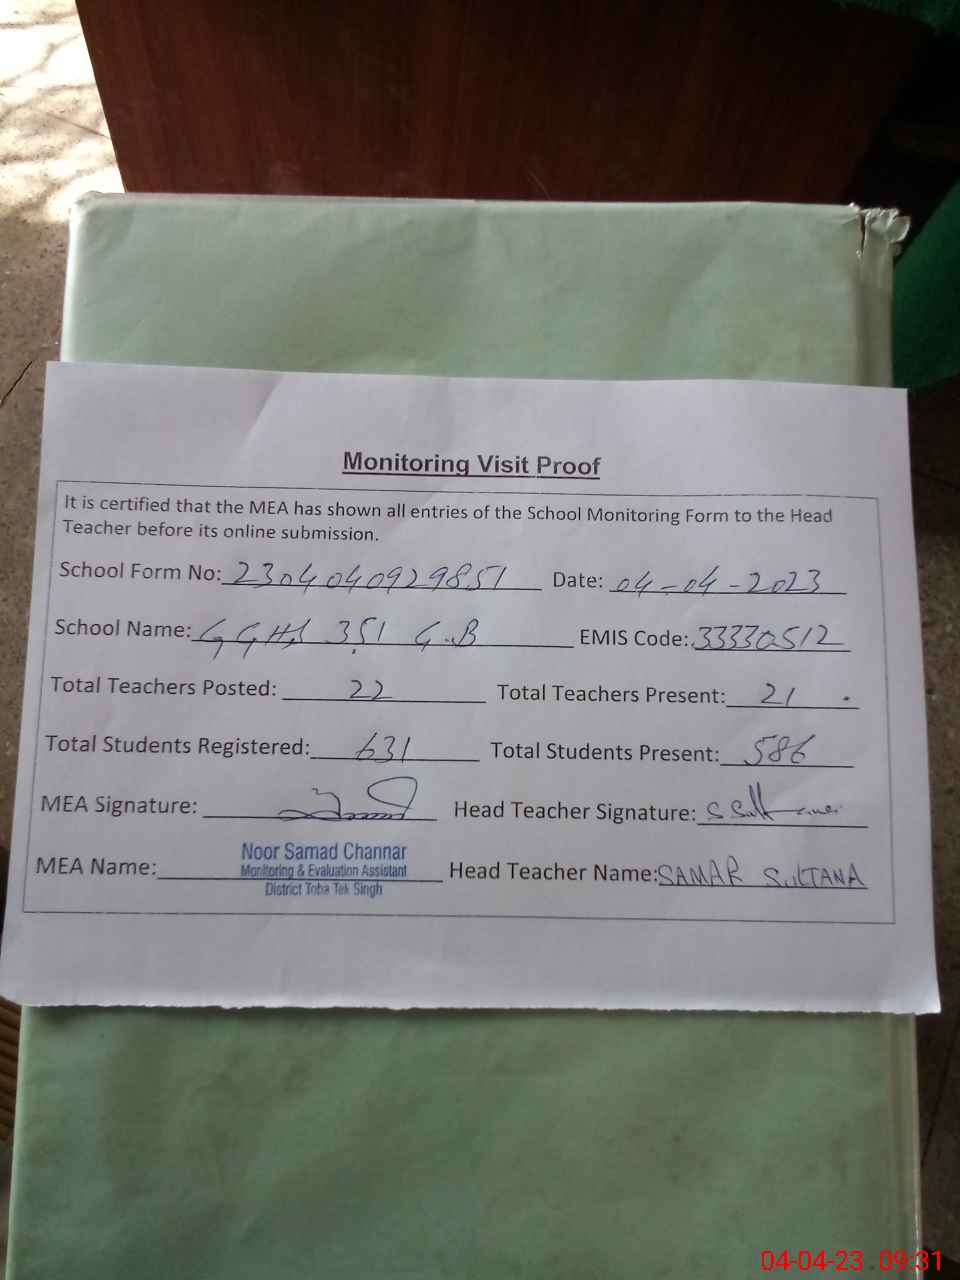 Monitoring Visit Proof
It is certified that the MEA has shown all entries of the School Monitoring Form to the Head
Teacher before its online submission.
School Form No: 2304040929851 Date: 04-04-2023
School Name: GGHS 351 G.B EMIS Code: 33330512
Total Teachers Posted: 22 Total Teachers Present: 21
Total Students Registered: 631 Total Students Present: 586
MEA Signature: Head Teacher Signature:
MEA Name: Noor Samad Channar
Monitoring & Evaluation Assistant
District Toba Tek Singh
Head Teacher Name: SAMAR SULTANA
04-04-23 09:31